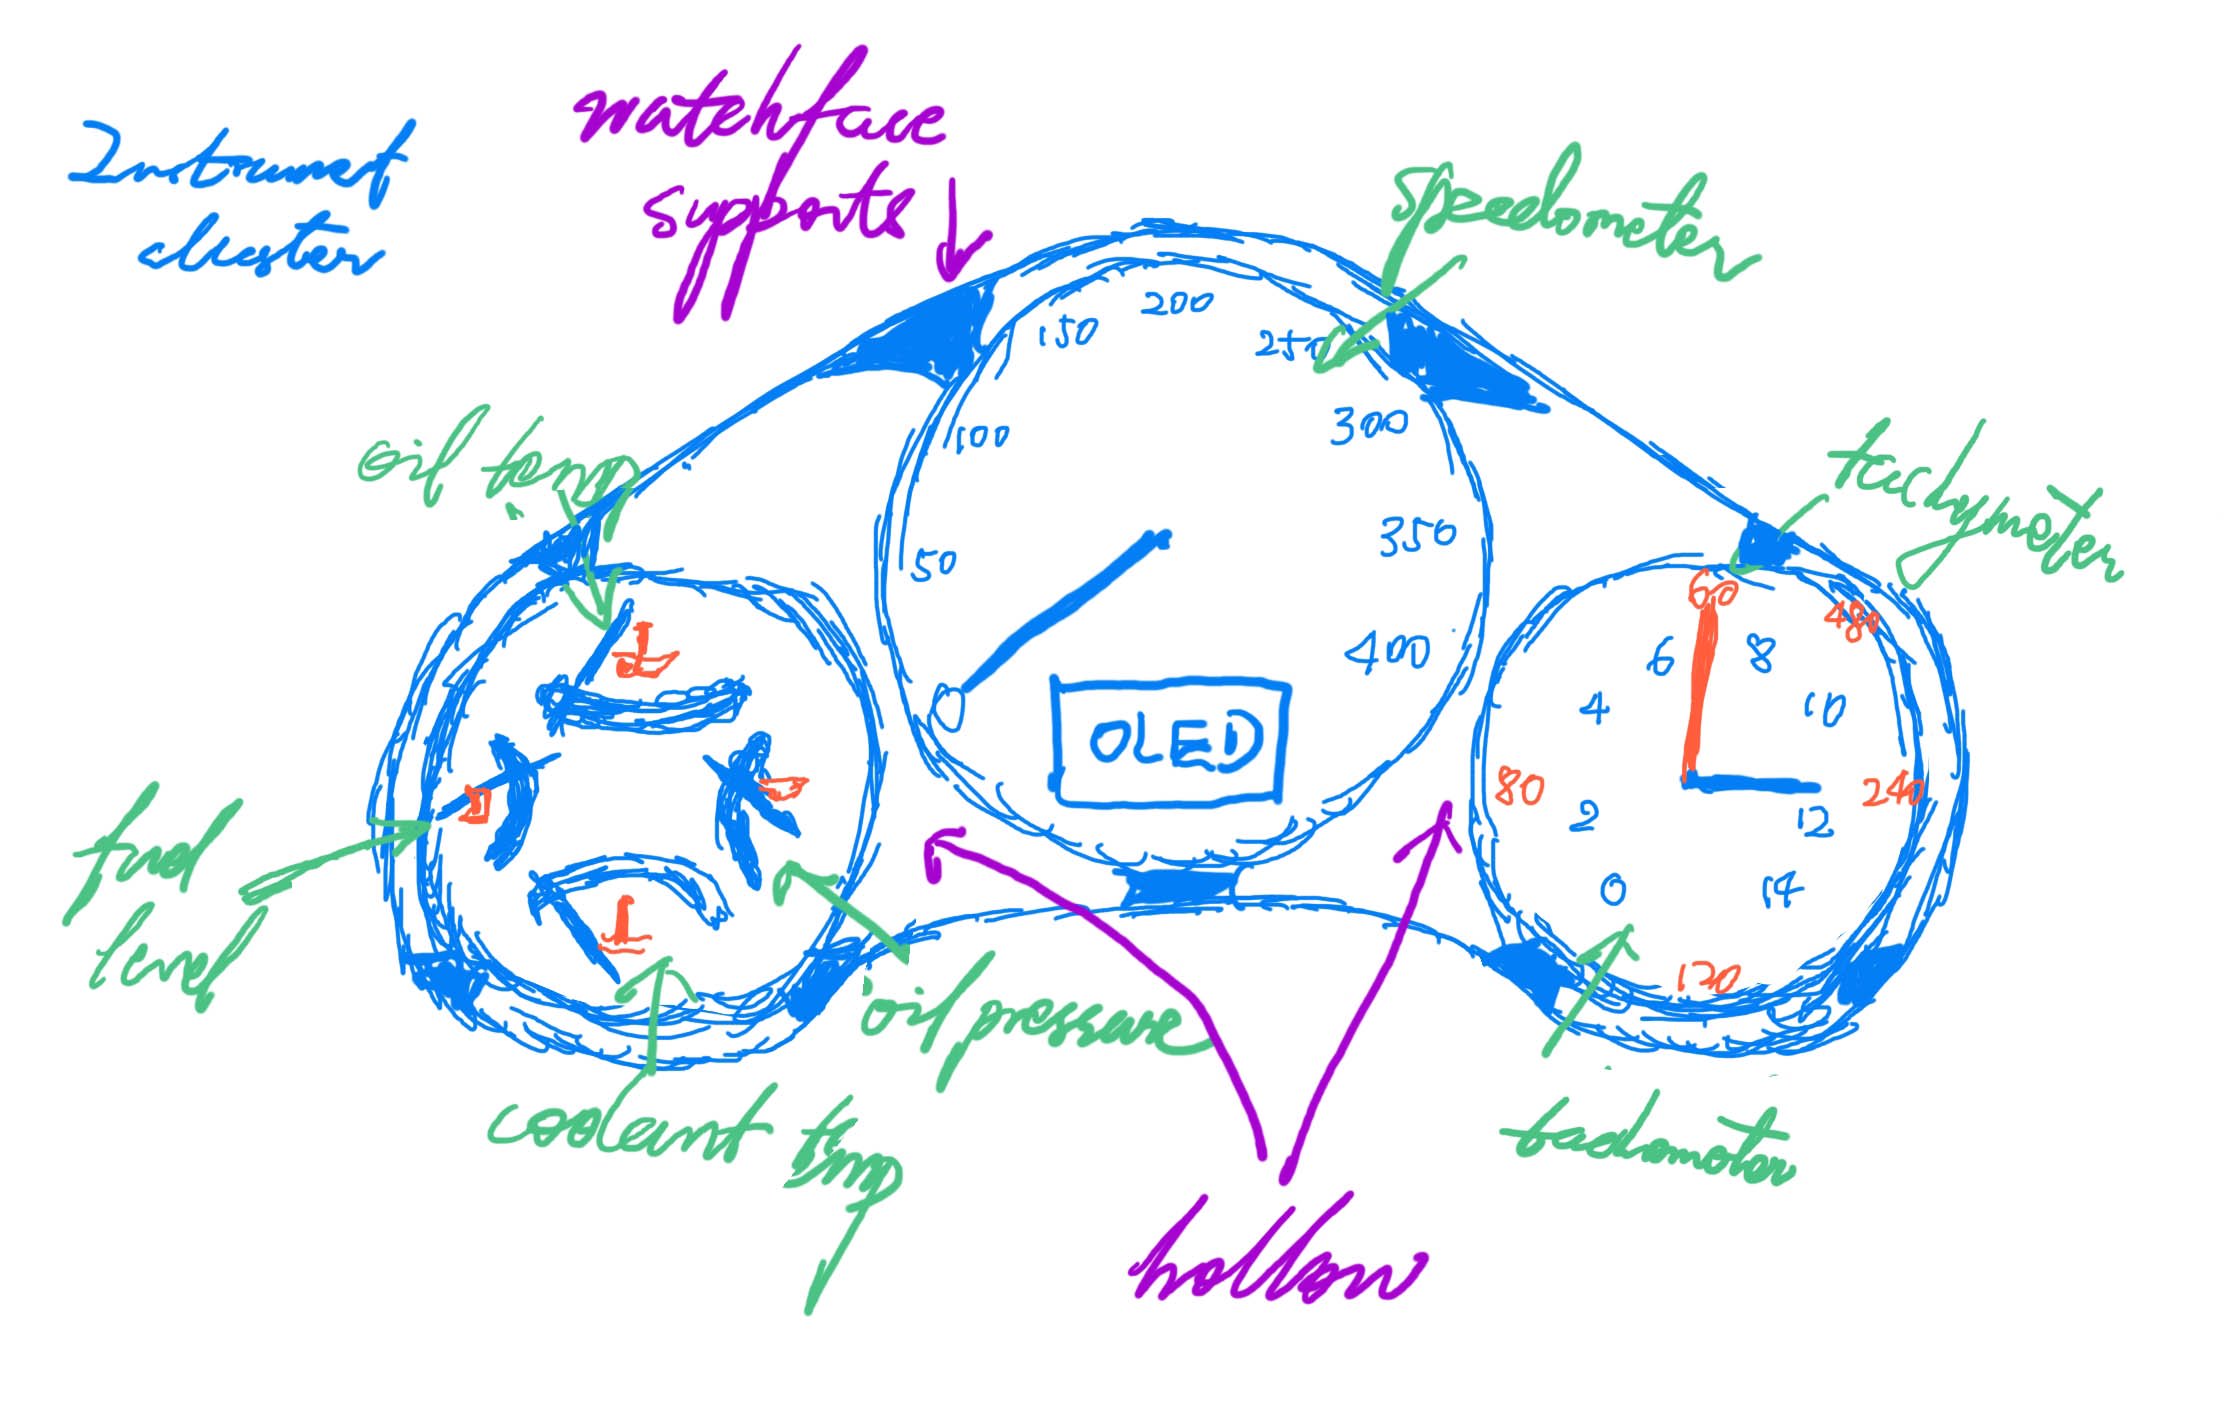 Intrumet
cluster
watchface
supports
speedometer
200
150
250
100
300
oil temp
tachymeter
50
350
60
480
6
8
400
4
10
OLED
80
240
2
12
fuel
level
0
14
120
oil pressure
coolant tmp
tachometer
hollow